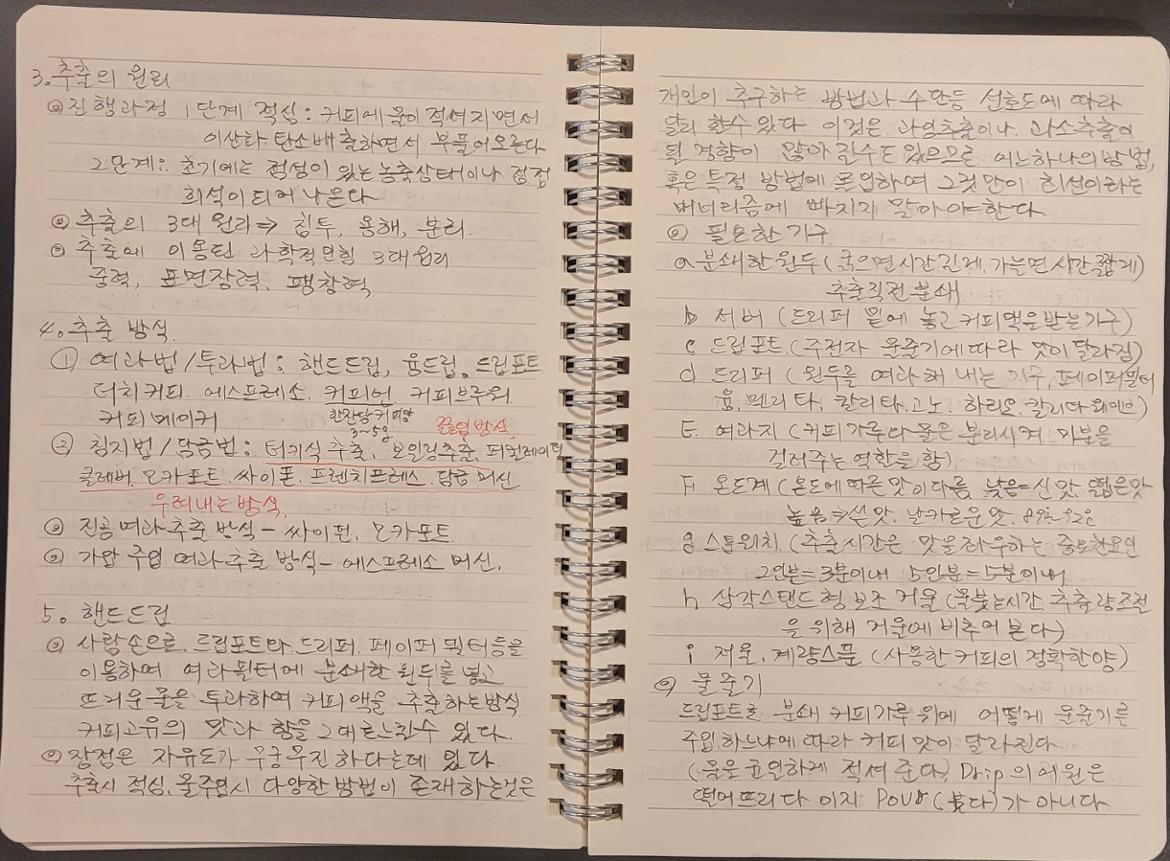 3. 추출의 원리
⊙ 진행과정 1단계 적심 : 커피에 물이 적셔지면서
이산화 탄소배출하면서 부풀어오른다
2단계 : 초기에는 점성이 있는 농축상태이나 점점
희석이 되어 나온다
⊙ 추출의 3대 원리 ⇒ 침투, 용해, 분리.
⊙ 추출에 이용된 과학적인힘 3대원리
중력, 표면장력, 팽창력
4. 추출 방식.
① 여과법/투과법 : 핸드드립, 융드립. 드립포트
더치커피. 에스프레소. 커피언 커피브루워
커피메이커
한잔당커피양
3~5g
끓임방식.
② 침지법/담금법 : 터키식 추출, 보일링추출, 퍼컬레이터
클레버. 모카포트. 싸이폰. 프렌치프레스. 담금 머신
우려내는방식.
⊙ 진공여과추출 방식 - 싸이펀. 모카포트.
⊙ 가압 주입 여과추출 방식 - 에스프레소 머신.
5. 핸드드립
⊙ 사람손으로 드립포트와. 드리퍼. 페이퍼 휠터등을
이용하여 여과휠터에 분쇄한 원두를 넣고
뜨거운물을 투과하여 커피액을 추출하는방식
커피고유의 맛과 향을 그대로느낄수 있다.
⊙ 장점은 자유도가 무궁무진 하다는데 있다.
추출시 적심, 물주입시 다양한 방법이 존재하는것은
개인이 추구하는 방법과 수단등 선호도에 따라
달리 할수 있다 이것은 과잉추출이나. 과소추출이
될 경향이 많아 질수도 있으므로 어느하나의 방법,
혹은 특정 방법에 몰입하여 그것만이 최선이라는
매너리즘에 빠지지 말아야한다
⊙ 필요한 기구
a 분쇄한원두 (굵으면시간길게, 가늘면 시간짧게)
추출직전 분쇄
b 서버 (드리퍼 밑에 놓고 커피액을받는기구)
c 드립포트. (주전자 물줄기에따라 맛이달라짐)
d 드리퍼 (원두를 여과해 내는 기구, 페이퍼필터
융, 멜리타, 칼리타. 고노. 하리오. 칼리타웨이브)
E. 여과지 (커피가루다 물은 분리시켜 미분을
걸러주는역할을 함)
F 온도계 (온도에 따른 맛이다름, 낮음⇒신맛. 떫은맛
높음⇒쓴맛. 날카로운맛.
g 스톱워치. (추출시간은 맛을좌우하는 중요한요인
2인분=3분이내 5인분=5분이내
h 삼각스탠드형 보조 거울 (물붓는시간. 추출량조절
을 위해 거울에 비추어 본다)
i 저울. 계량스푼 (사용한 커피의 정확한양)
⊙ 물줄기
드립포트로 분쇄 커피가루 위에 어떻게 물줄기를
주입하느냐에 따라 커피 맛이 달라진다
(물을 균일하게 적셔 준다) Drip의 어원은
떨어뜨리다 이지 Pour(붓다)가 아니다